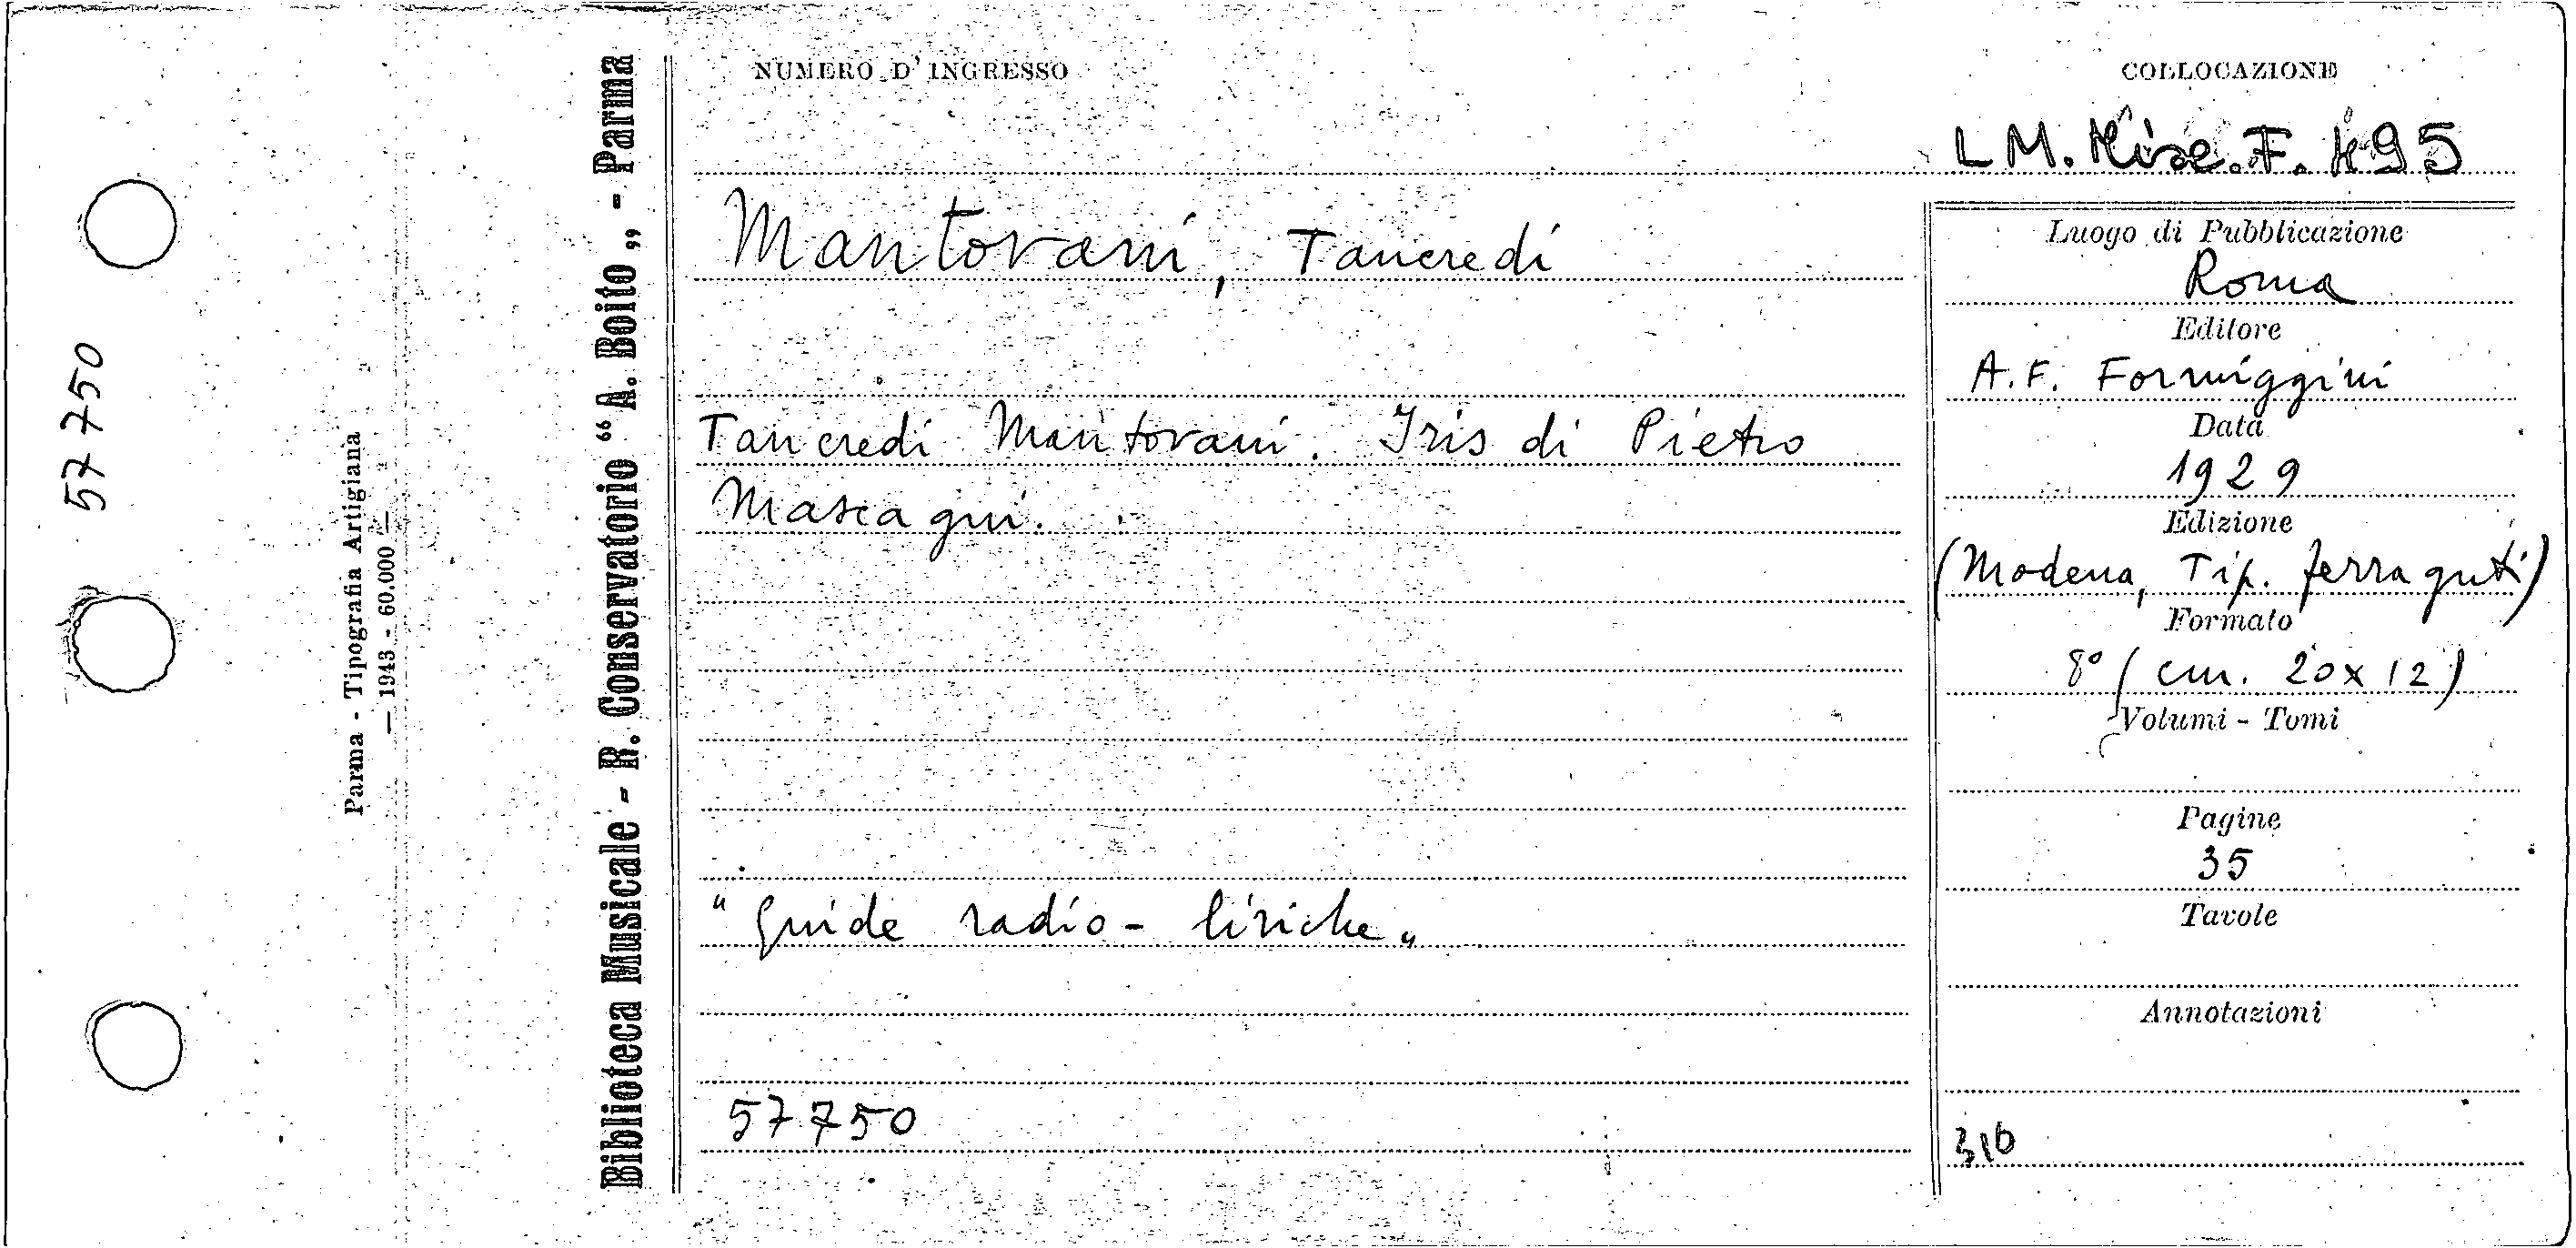 57750
Parma - Tipografia Artigiana
— 1943 - 60.000 —
Biblioteca Musicale - R. Conservatorio “ A. Boito „ - Parma
NUMERO D' INGRESSO
Mantovani, Tancredi
Tancredi Mantovani. Iris di Pietro
Mascagni.
"Guide radio-liriche„
57750
COLLOCAZIONE
LM. Misc. F. 495
Luogo di Pubblicazione
Roma
Editore
A. F. Formiggini
Data
1929
Edizione
(Modena, Tip. Ferraguti)
Formato
8° (cm. 20x12)
Volumi - Tomi
Pagine
35
Tavole
Annotazioni